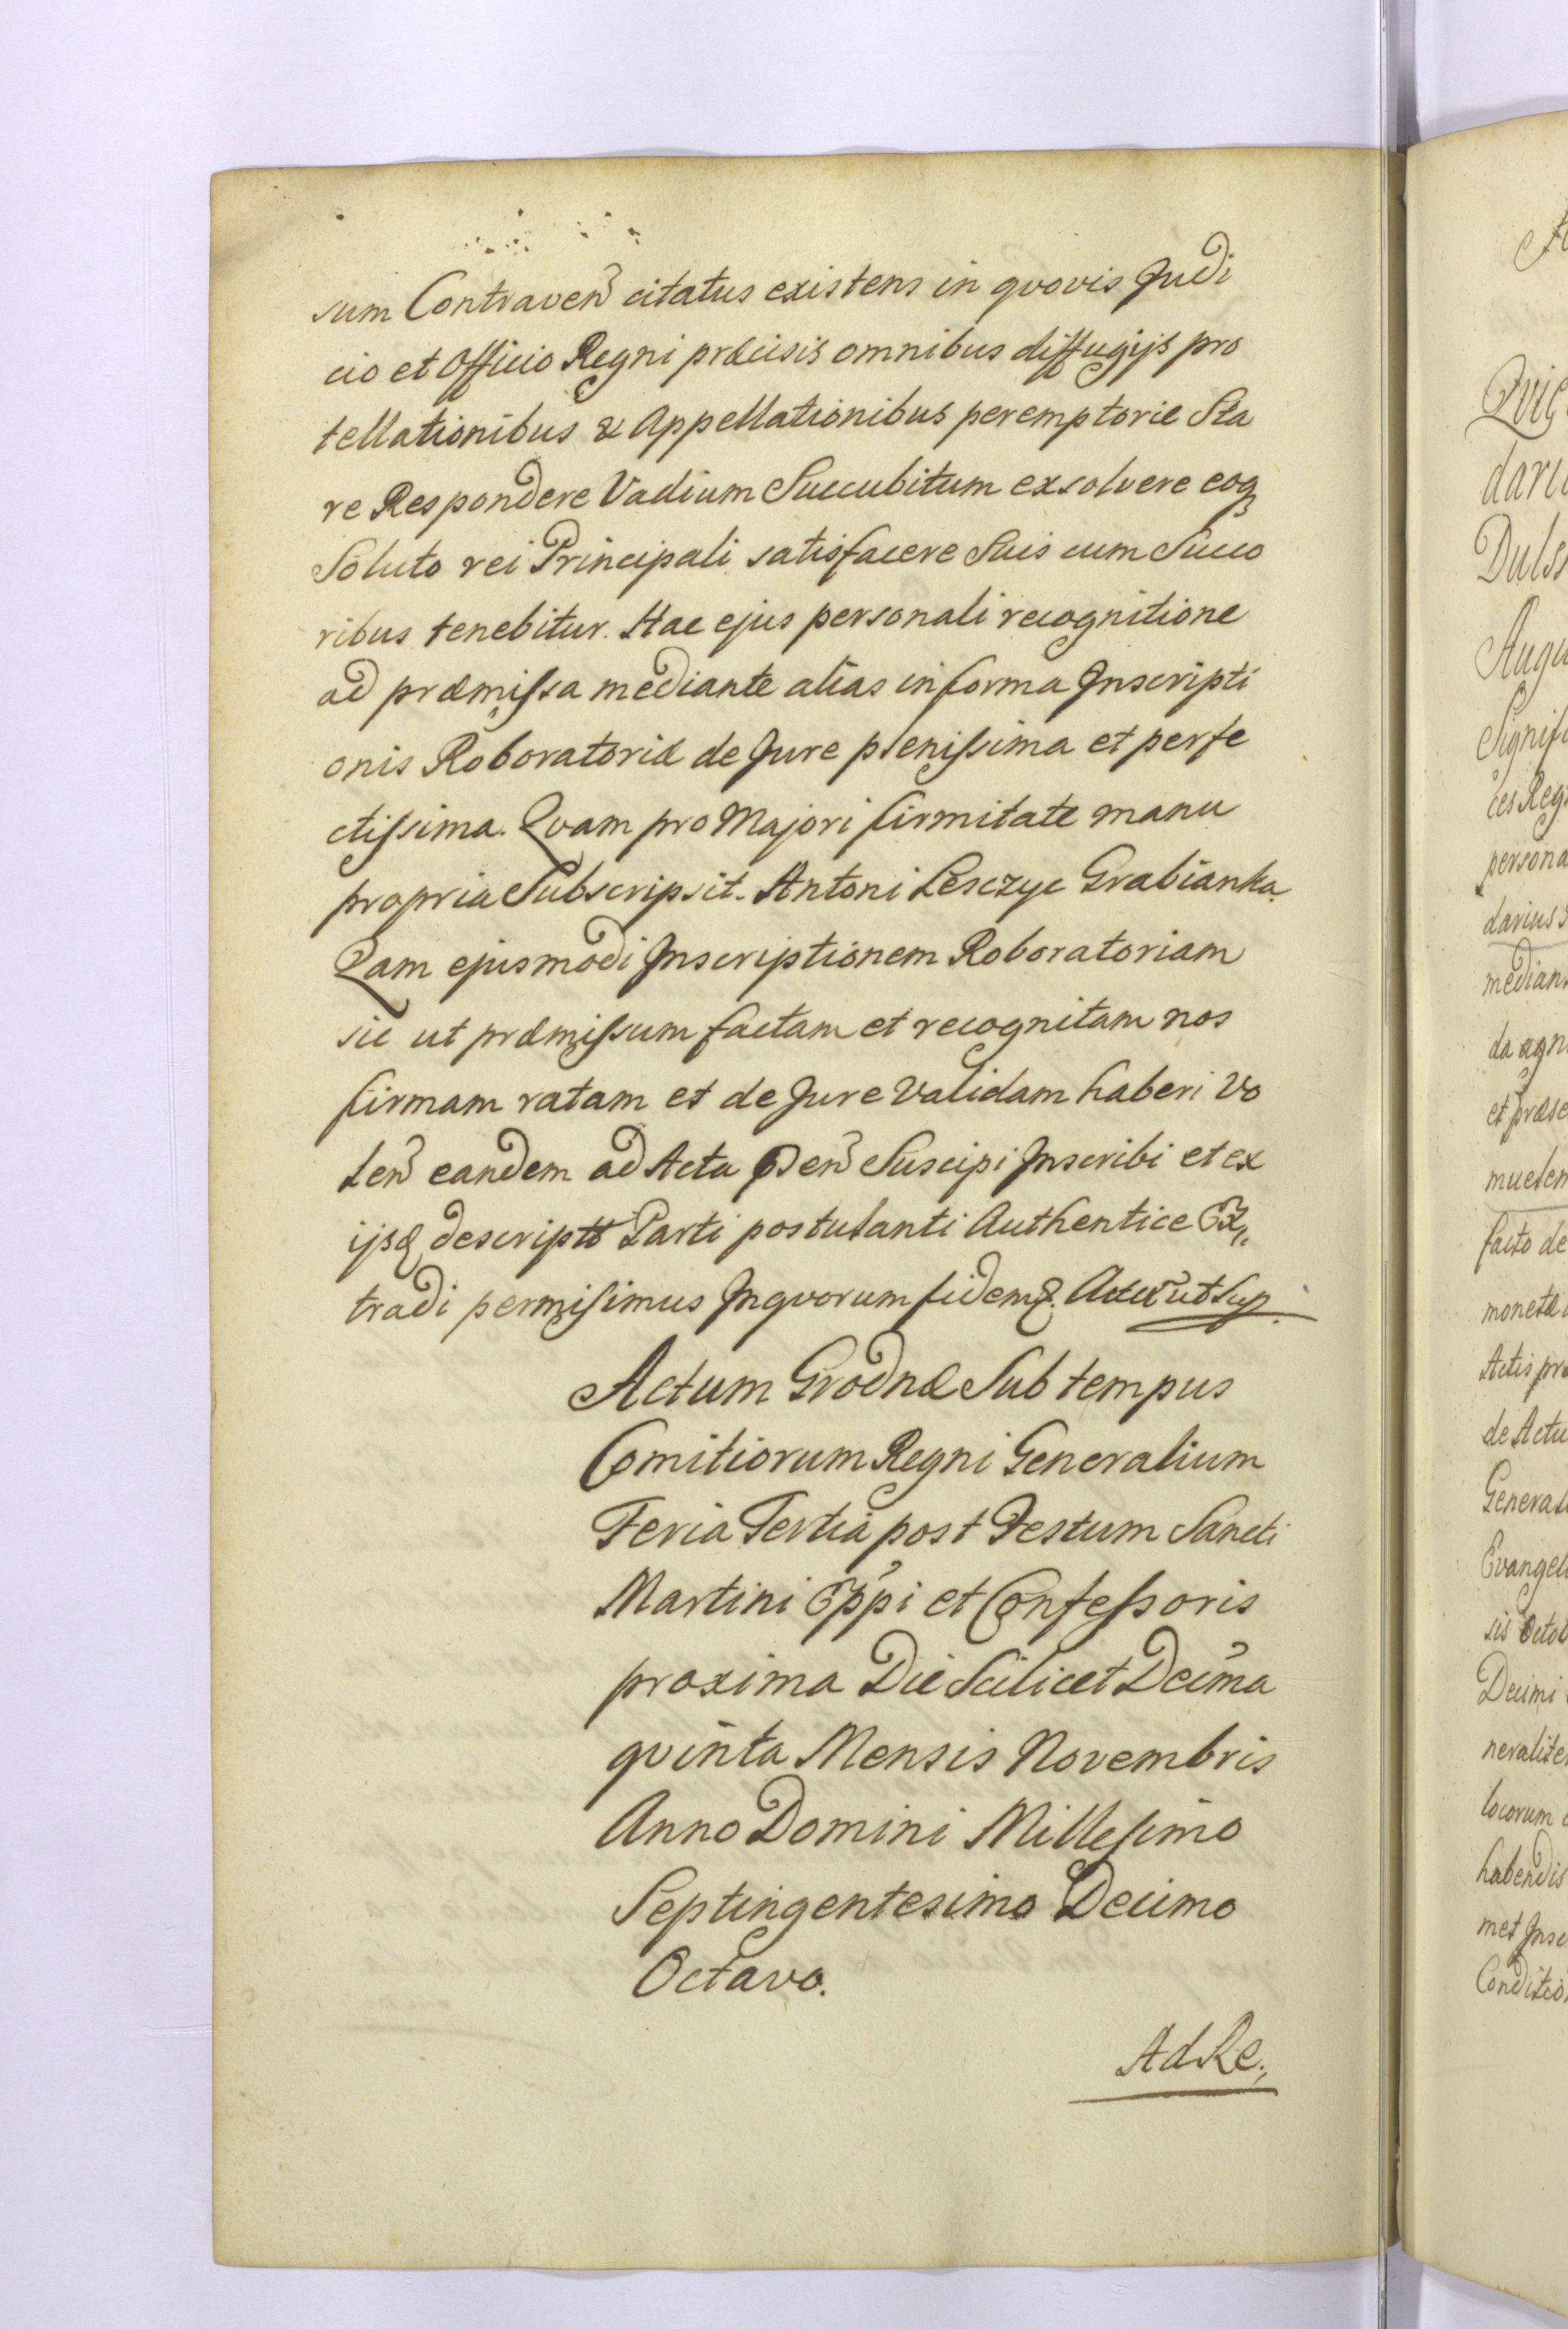 sum Contraven̄ citatus existens in qvovis Judi
cio et Officio Regni præcisis omnibus diffugijs pro
tellationibus & Appellationibus peremptorie Sta
re Respondere Vadium Succubitum exsolvere eoqꝫ
Soluto rei Principali satisfacere Suis cum Succo
ribus tenebitur. Hac ejus personali recognitione
ad præmissa mediante alias in forma Inscripti
onis Roboratoriæ de Jure plenissima et perfe
ctissima. Qvam pro Majori firmitate manu
propria Subscripsit. Antoni Lesczyc Grabianka.
Qam ejusmodi Inscriptionem Roboratoriam
sic ut præmissum factam et recognitam nos
firmam ratam et de Jure Validam haberi Vo
len̄ eandem ad Acta p̄sen̄ Suscipi Inscribi et ex
ijsqꝫ descriptt Parti postulanti Authentice Ex,,
tradi permisimus Inqvorum fidem &. Actu ut Sup.
Actum Grodnæ Sub tempus
Comitiorum Regni Generalium
Feria Tertia post Festum Sancti
Martini Ep̄pi et Confessoris
proxima Die Scilicet Deci̅ma
qvinta Mensis Novembris
Anno Domini Millesimo
Septingentesimo Decimo
Octavo.
Ad Re.,
Qvi
dari
Dulss
Augu
Signifi
ces Reg
persona
darius
median
da agn
et præse
muelem
facto de
monetæ
Actis pr
de Actu
General
Evangel
sis Octo
Decimi
neralite
locorum
habendis
met Insc
Conditio